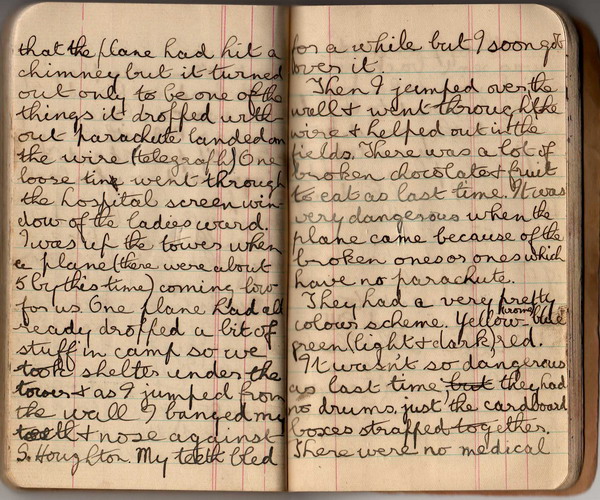 that the plane had hit a
chimney but it turned
out only to be one of the
things it dropped with-
out parachute landed on
the wire (telegraph) One
loose tin went through
the hospital screen win-
dow of the ladies ward.
I was up the tower when
a plane (there were about
5 by this time) coming low
for us One plane had all
ready dropped a bit of
stuff in camp so we
took shelter under the
tower & as I jumped from
the wall I banged my
teeth & nose against
S. Houghton. My teeth bled
for a while but I soon got
over it.
Then I jumped over the
wall & went through the
wire & helped out in the
fields. There was a lot of
broken chocolate & fruit
to eat as last time. It was
very dangerous when the
plane came because of the
broken ones or ones which
have no parachute.
They had a very pretty
colour scheme. Yellow (wrong) blue
green (light & dark) red.
It wasn't so dangerous
as last time but they had
no drums, just the cardboard
boxes strapped together.
There were no medical